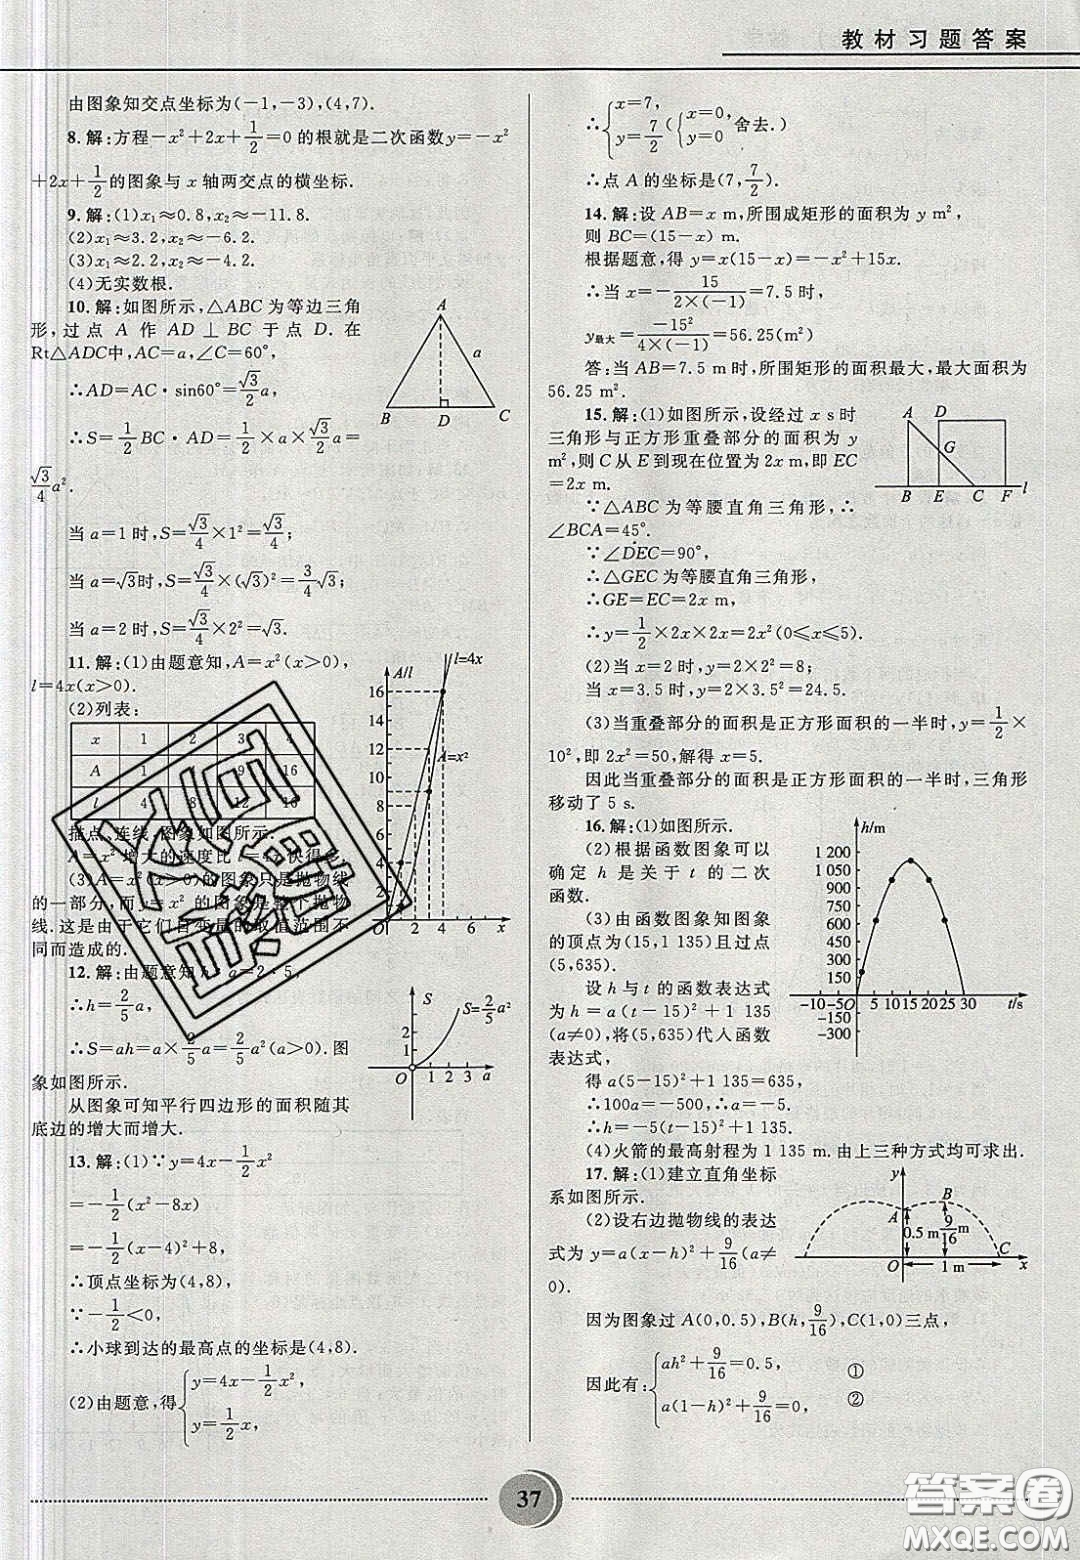 教材习题答案
由图象知交点坐标为(-1,-3),(4,7).
8.解:方程-x²+2x+1/2=0的根就是二次函数y=-x²
+2x+1/2的图象与x轴两交点的横坐标.
9.解:(1)x₁≈0.8,x₂≈-11.8.
(2)x₁≈3.2,x₂≈-6.2.
(3)x₁≈2.2,x₂≈-4.2.
(4)无实数根.
10.解:如图所示,△ABC为等边三角
形,过点A作AD⊥BC于点D.在
Rt△ADC中,AC=a,∠C=60°,
∴AD=AC·sin60°=√3/2a,
∴S=1/2BC·AD=1/2×a×√3/2a=
√3/4a².
当a=1时,S=√3/4×1²=√3/4;
当a=√3时,S=√3/4×(√3)²=3√3/4;
当a=2时,S=√3/4×2²=√3.
A
a
B D C
11.解:(1)由题意知,A=x²(x>0),
l=4x(x>0).
(2)列表:
x 1 2 3 4
A 1 9 16
l 4 8 12 16
描点、连线,图象如图所示.
A=x²增大的速度比l=4x快得多.
(3)A=x²(x>0)的图象只是抛物线
的一部分,而y=x²的图象是整个抛物
线.这是由于它们自变量的取值范围不
同而造成的.
A/l
l=4x
16
14
12
10
A=x²
8
6
4
2
O 2 4 6 x
12.解:由题意知h:a=2:5,
∴h=2/5a,
∴S=ah=a×2/5a=2/5a²(a>0).图
象如图所示.
从图象可知平行四边形的面积随其
底边的增大而增大.
S
S=2/5a²
2
1
O 1 2 3 a
13.解:(1)∵y=4x-1/2x²
=-1/2(x²-8x)
=-1/2(x-4)²+8,
∴顶点坐标为(4,8),
∵-1/2<0,
∴小球到达的最高点的坐标是(4,8).
(2)由题意,得{y=4x-1/2x²,
y=1/2x,
∴{x=7,
y=7/2({x=0,
y=0舍去.)
∴点A的坐标是(7,7/2).
14.解:设AB=x m,所围成矩形的面积为y m²,
则BC=(15-x) m.
根据题意,得y=x(15-x)=-x²+15x.
∴当x=-15/2×(-1)=7.5时,
y最大=-15²/4×(-1)=56.25(m²)
答:当AB=7.5 m时,所围矩形的面积最大,最大面积为
56.25 m².
15.解:(1)如图所示,设经过x s时
三角形与正方形重叠部分的面积为y
m²,则C从E到现在位置为2x m,即EC
=2x m.
∵△ABC为等腰直角三角形,∴
∠BCA=45°.
∵∠DEC=90°,
∴△GEC为等腰直角三角形,
∴GE=EC=2x m,
∴y=1/2×2x×2x=2x²(0≤x≤5).
(2)当x=2时,y=2×2²=8;
当x=3.5时,y=2×3.5²=24.5.
(3)当重叠部分的面积是正方形面积的一半时,y=1/2×
10²,即2x²=50,解得x=5.
因此当重叠部分的面积是正方形面积的一半时,三角形
移动了5 s.
A D
G
B E C F l
16.解:(1)如图所示.
(2)根据函数图象可以
确定h是关于t的二次
函数.
(3)由函数图象知图象
的顶点为(15,1 135)且过点
(5,635).
设h与t的函数表达式
为h=a(t-15)²+1 135
(a≠0),将(5,635)代入函数
表达式,
得a(5-15)²+1 135=635,
∴100a=-500,∴a=-5.
∴h=-5(t-15)²+1 135.
(4)火箭的最高射程为1 135 m.由上三种方式均可求出.
h/m
1 200
1 050
900
750
600
450
300
150
-10-5 O 5 10 15 20 25 30 t/s
-150
-300
17.解:(1)建立直角坐标
系如图所示.
(2)设右边抛物线的表达
式为y=a(x-h)²+9/16(a≠
0).
因为图象过A(0,0.5),B(h,9/16),C(1,0)三点,
因此有:{ah²+9/16=0.5, ①
a(1-h)²+9/16=0. ②
y
B
A
0.5 m
9/16 m
C
O 1 m x
37
答案圈
MXQE.COM